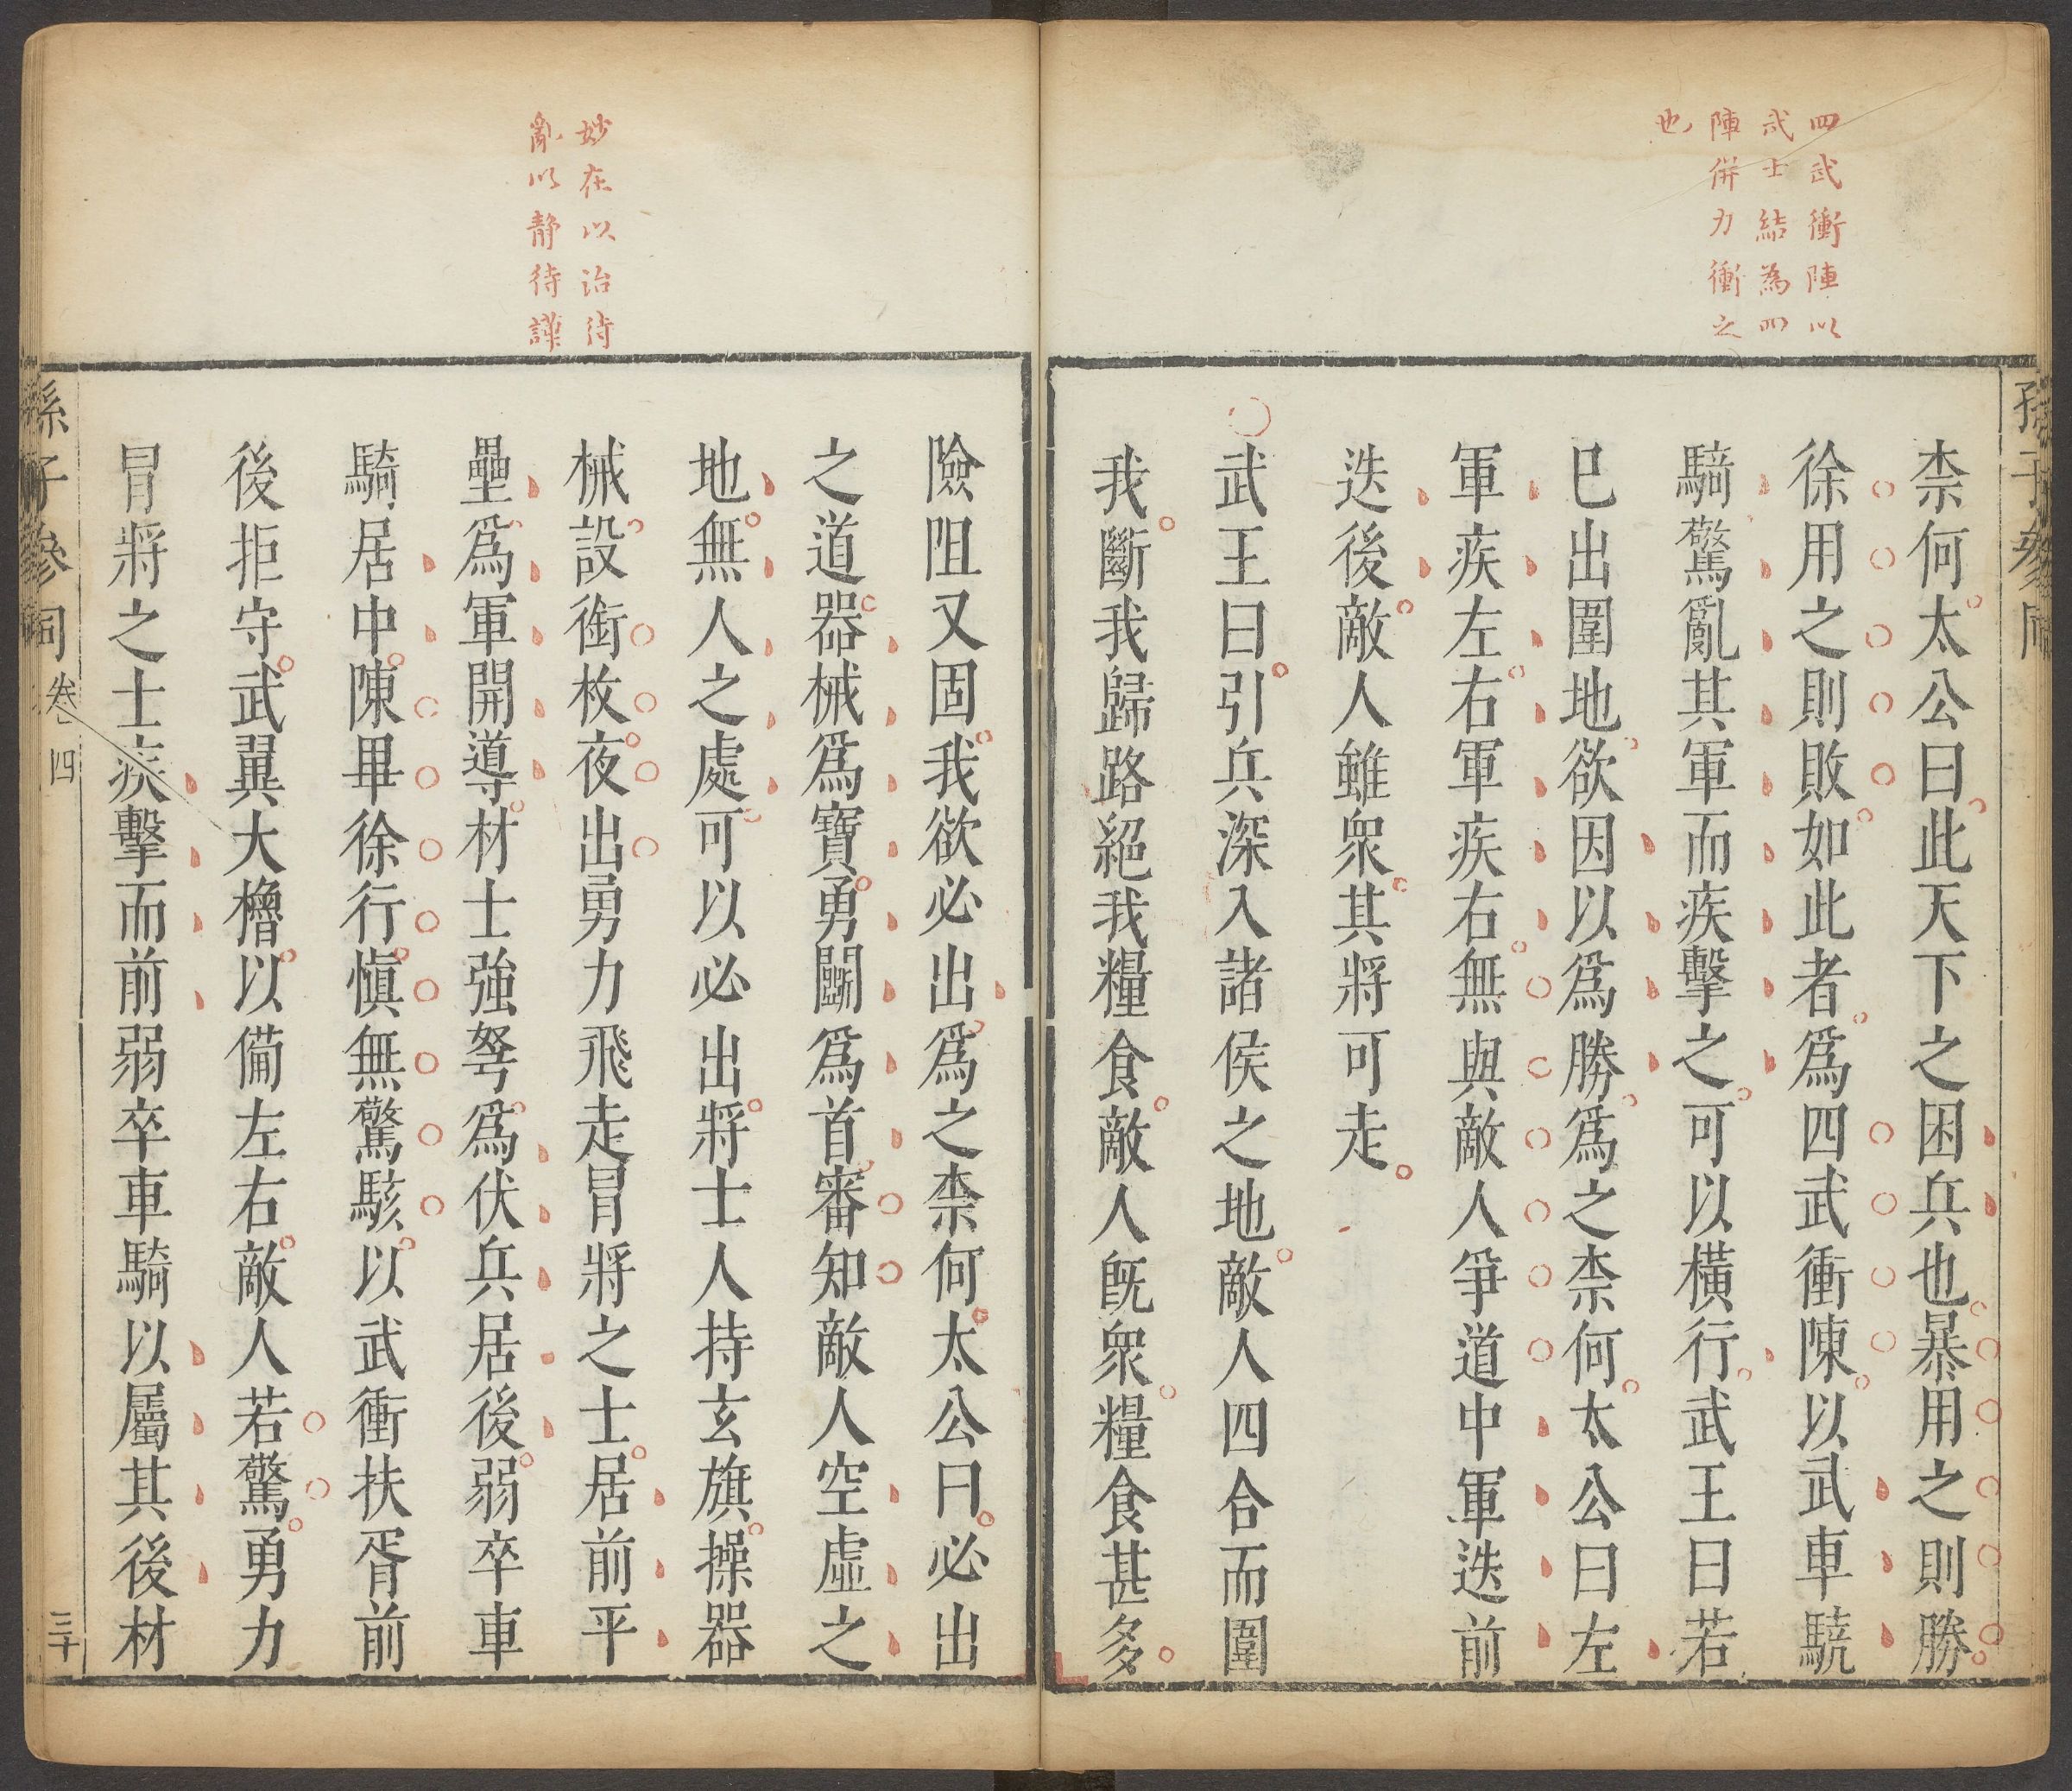 四武衝陣以
武士結為四
陣併力衝之
也
柰何太公曰此天下之困兵也暴用之則勝
徐用之則敗如此者爲四武衝陳以武車驍
騎驚亂其軍而疾擊之可以橫行武王曰若
已出圍地欲因以爲勝爲之柰何太公曰左
軍疾左右軍疾右無與敵人爭道中軍迭前
迭後敵人雖衆其將可走
武王曰引兵深入諸侯之地敵人四合而圍
我斷我歸路絕我糧食敵人旣衆糧食甚多
妙在以治待
亂以靜待譁
險阻又固我欲必出爲之柰何太公曰必出
之道器械爲寶勇鬭爲首審知敵人空虛之
地無人之處可以必出將士人持玄旗操器
械設銜枚夜出勇力飛走冒將之士居前平
壘爲軍開導材士強弩爲伏兵居後弱卒車
騎居中陳畢徐行愼無驚駭以武衝扶胥前
後拒守武翼大櫓以備左右敵人若驚勇力
冒將之士疾擊而前弱卒車騎以屬其後材
孫子參同 卷四 三十